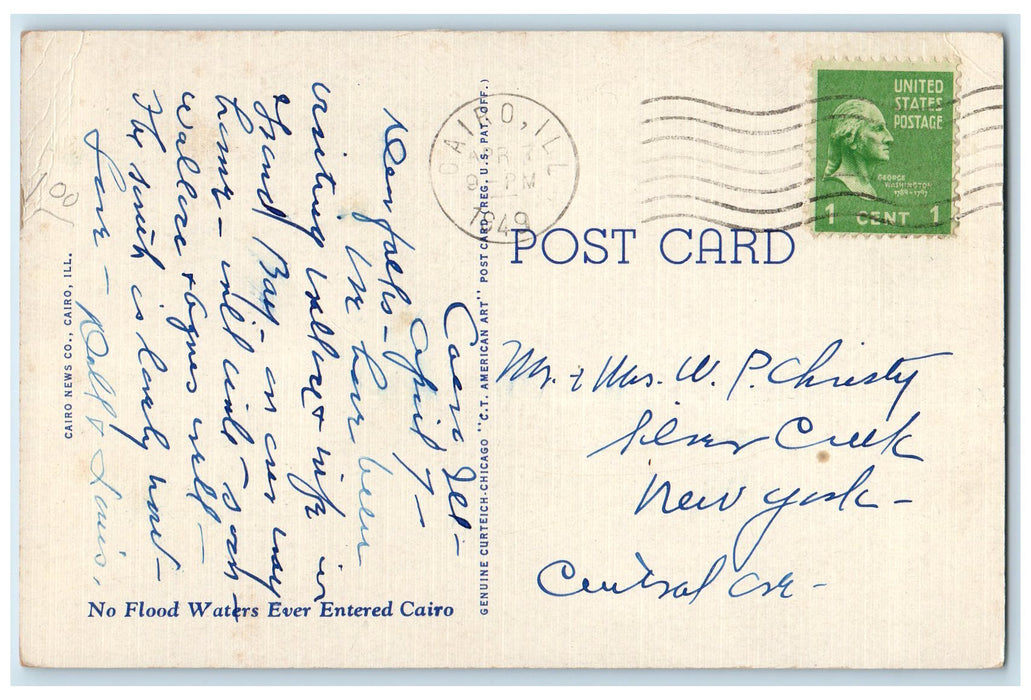 CAIRO, ILL
APR 7
9 - PM
1949
UNITED
STATES
POSTAGE
GEORGE
WASHINGTON
1789-1797
1 CENT 1
POST CARD
Cairo Ill -
April 7 -
Dear folks -
We have been
visiting Wallace & wife in
Grand Bay - on our way
home - will visit - soon -
Wallace & Agnes well -
The south is lovely now -
Love -
Mr. & Mrs. W. P. Christy
Silver Creek
New York -
Central Ave -
GENUINE CURTEICH-CHICAGO "C.T. AMERICAN ART" POST CARD (REG. U.S. PAT. OFF.)
CAIRO NEWS CO., CAIRO, ILL.
No Flood Waters Ever Entered Cairo
1 00